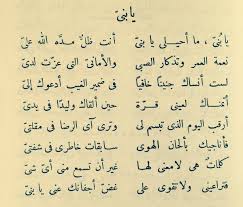 يا بنىّ
يا بُنىّ ، ما أُحيلى يا بنىّ أنت ظلٌ مدّه الله علىّ
نعمة العمر وتذكار الصبى والأمانىّ التى عزت لدىّ
لست أنساك جنينًا خافيا فى ضمير الغيب أدعوك إلىّ
أنت أنساك لعينى قرّة حين ألقاك وليدًا فى يدىّ
أرقب اليوم الذى تبسم لى وترى آى الرضا فى مقلتىّ
فأناجيك بألحان الهوى سابقات خاطرى فى شفتىّ
كلماتٌ هى لا معنى لها غير أن تسمع منى أىّ شىّ
فتراعينى ولا تقوى على غضّ أجفانك عنى يا بنىّ